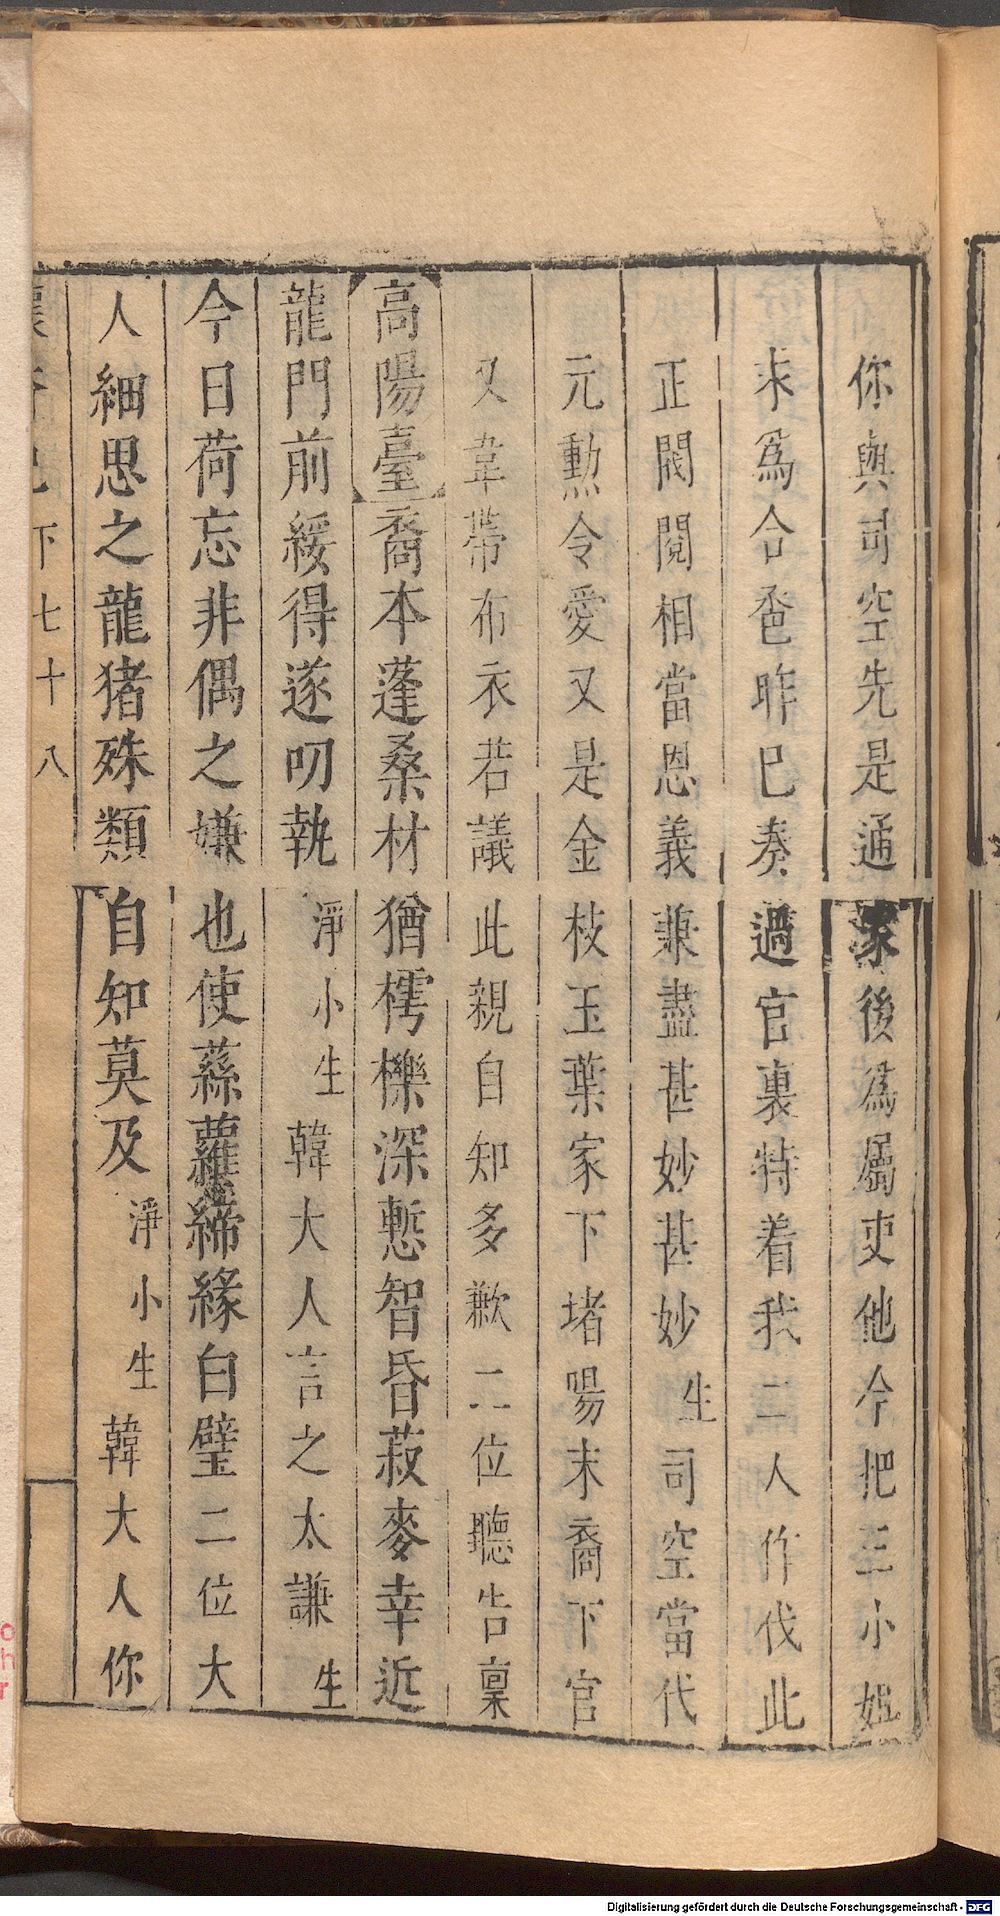 你與司空先是通家後為屬吏他今把三小姐
求為合巹昨已奏過官裏特着我二人作伐此
正閥閱相當恩義兼盡甚妙甚妙生司空當代
元勳令愛又是金枝玉葉家下堵陽末裔下官
又韋帶布衣若議此親自知多歉二位聽告稟
高陽臺裔本蓬桑材猶樗櫟深慙智昏菽麥幸近
龍門前綏得遂叨執淨小生韓大人言之太謙生
今日荷忘非偶之嫌也使蔦蘿締緣白璧二位大
人細思之龍猪殊類自知莫及淨小生韓大人你
下七十八
Digitalisierung gefördert durch die Deutsche Forschungsgemeinschaft - DFG